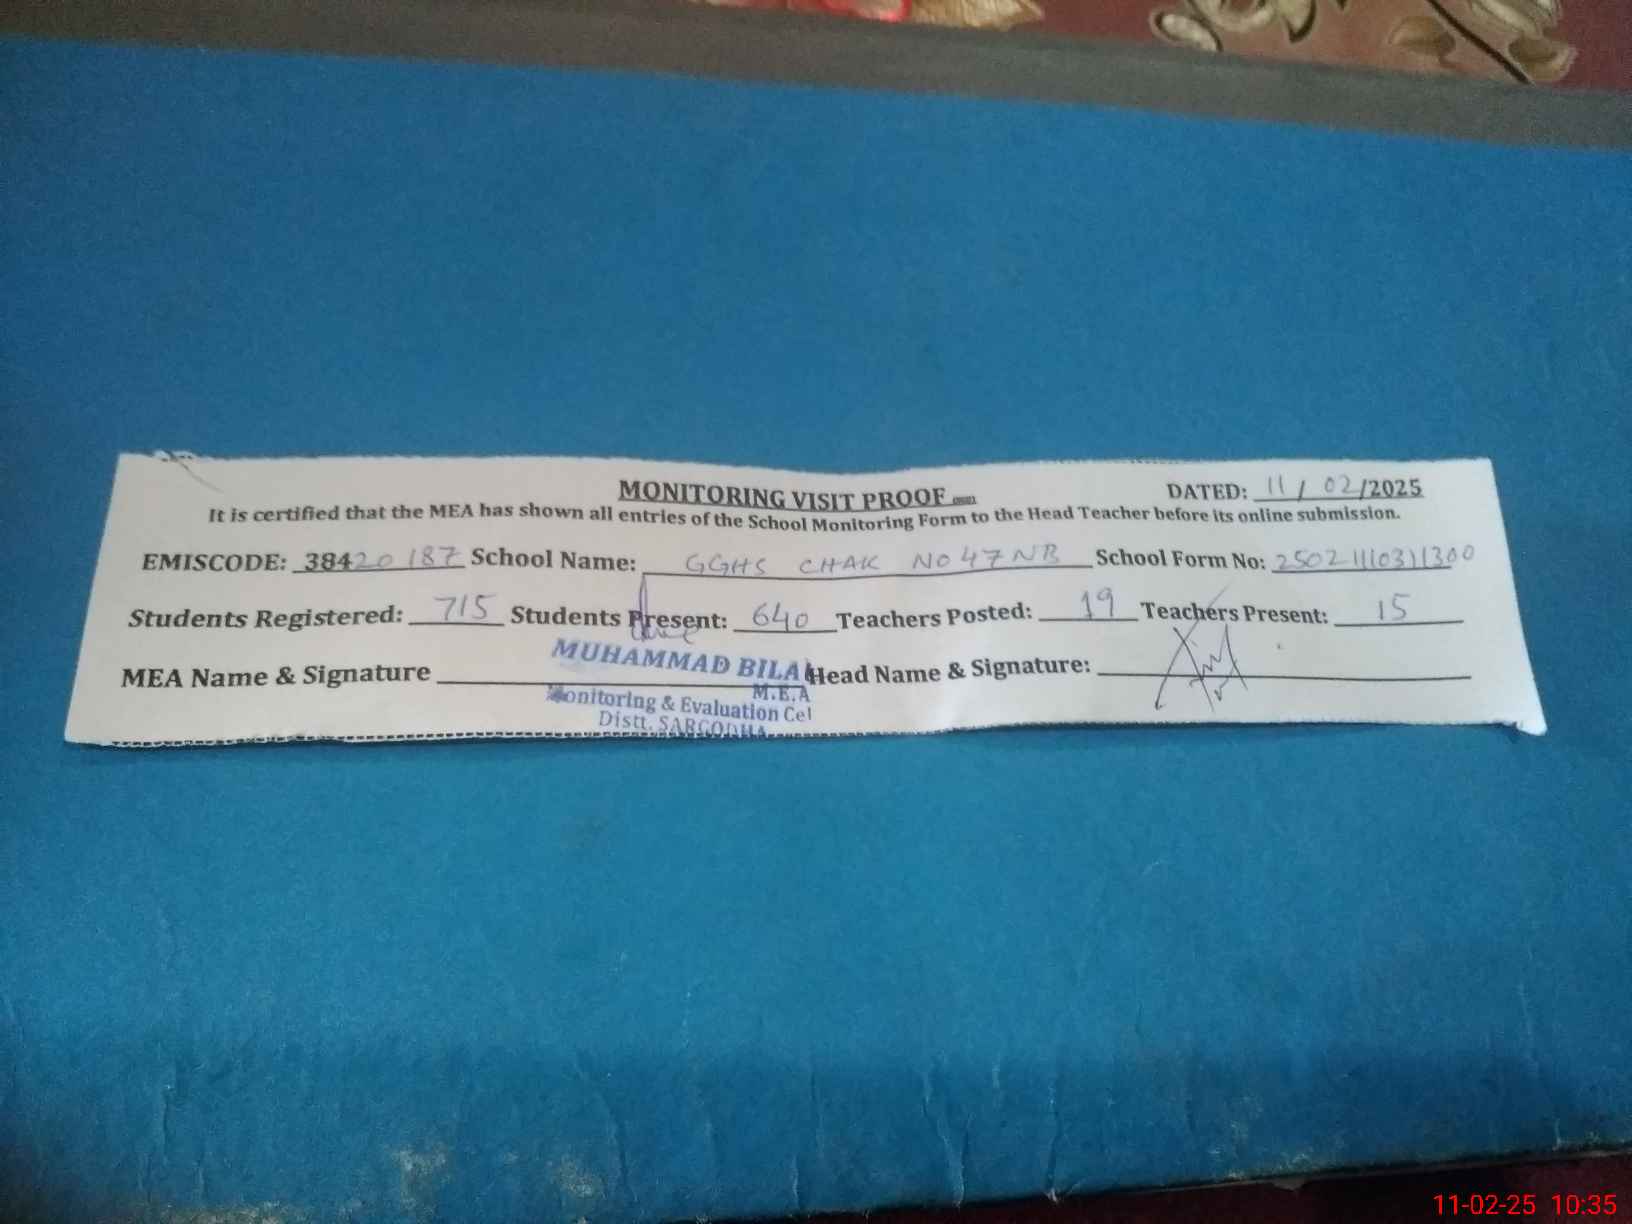 MONITORING VISIT PROOF
DATED: 11 / 02 /2025
It is certified that the MEA has shown all entries of the School Monitoring Form to the Head Teacher before its online submission.
EMISCODE: 38420187 School Name: GGHS CHAK NO 47 NB School Form No: 25021110311300
Students Registered: 715 Students Present: 640 Teachers Posted: 19 Teachers Present: 15
MEA Name & Signature MUHAMMAD BILAL Head Name & Signature:
M.E.A
Monitoring & Evaluation Cel
Distt. SARGODHA
11-02-25 10:35